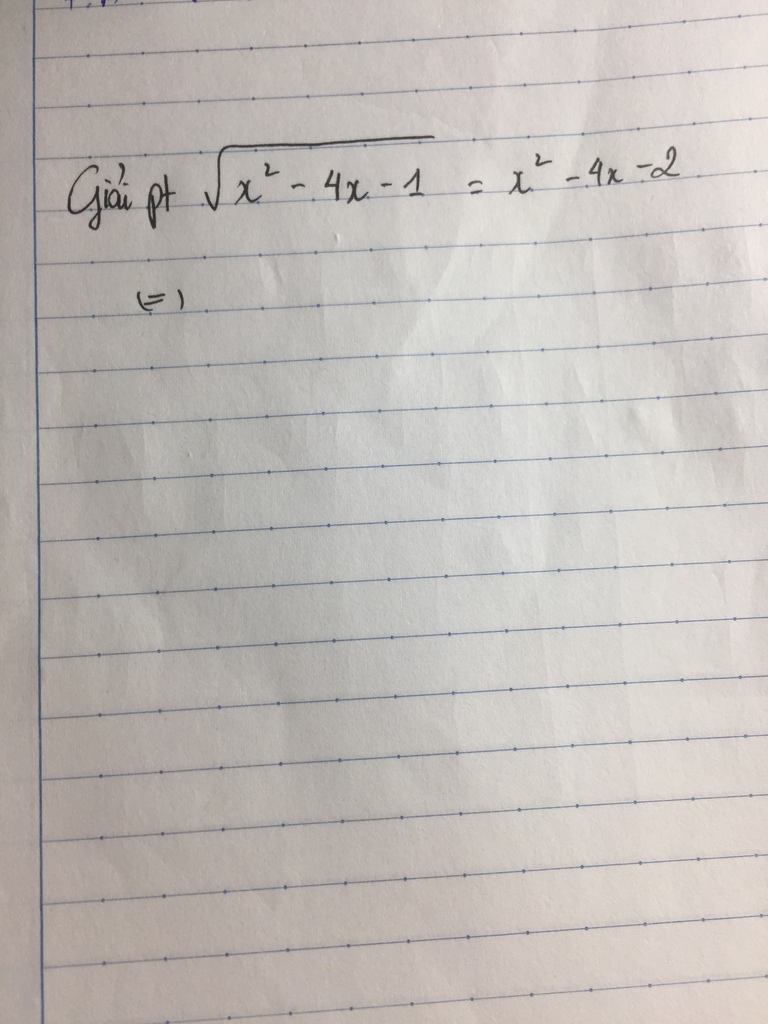 Giải pt √(x² - 4x - 1) = x² - 4x - 2
(=)